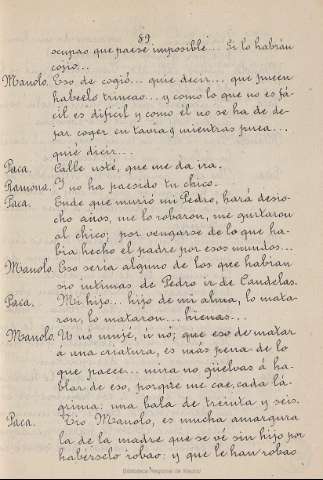 89
ocupas que paese imposible... Si lo habrán
cojío...
Manolo. Eso de cogió... quie decir... que pueen
haberlo trincao... y como lo que no es fá-
cil es difícil y como él no se ha de de-
jar coger en taura y mientras puea...
quié dicir...
Paca. Calle usté, que me da ira.
Ramona. Y no ha paesido tu chico.
Paca. Ende que murió mi Pedro, hará desio-
cho años, me lo robaron, me quitaron
al chico; por vengarse de lo que ha-
bía hecho el padre por esos mundos...
Manolo. Eso sería alguno de los que habrán
sío vitimas de Pedro ú de Candelas.
Paca. Mi hijo... hijo de mi alma, lo mata-
ron, lo mataron... hienas...
Manolo. U nó mujé, ú nó; que eso de matar
á una criatura, es más pena de lo
que paece... mira no güelvas á ha-
blar de eso, porque me cae, cada lá-
grima; una bala de treinta y seis.
Paca. Tio Manolo, es mucha amargura
la de la madre que se vé sin hijo por
habérselo robao; y que le han robao
Biblioteca Regional de Madrid